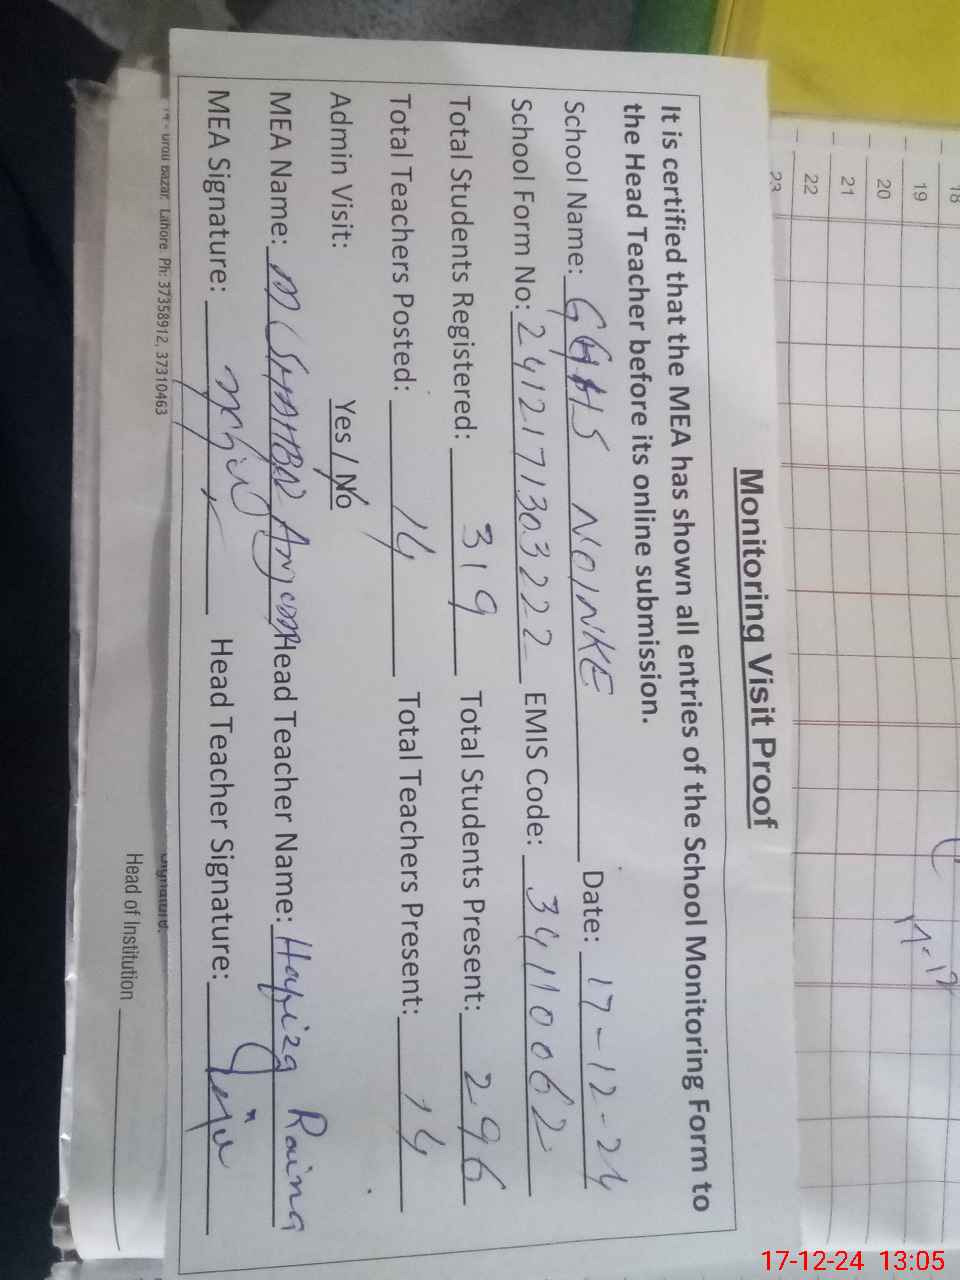 Monitoring Visit Proof
It is certified that the MEA has shown all entries of the School Monitoring Form to
the Head Teacher before its online submission.
School Name: GGHS NOINKE Date: 17-12-24
School Form No: 2412171303222 EMIS Code: 34110062
Total Students Registered: 319 Total Students Present: 296
Total Teachers Posted: 14 Total Teachers Present: 14
Admin Visit: Yes / No
MEA Name: M Head Teacher Name: Hafiza Raina
MEA Signature: Head Teacher Signature:
Urdu Bazar, Lahore. Ph: 37358912, 37310463
Signature:
Head of Institution
18
19
20
21
22
23
17-12-24 13:05